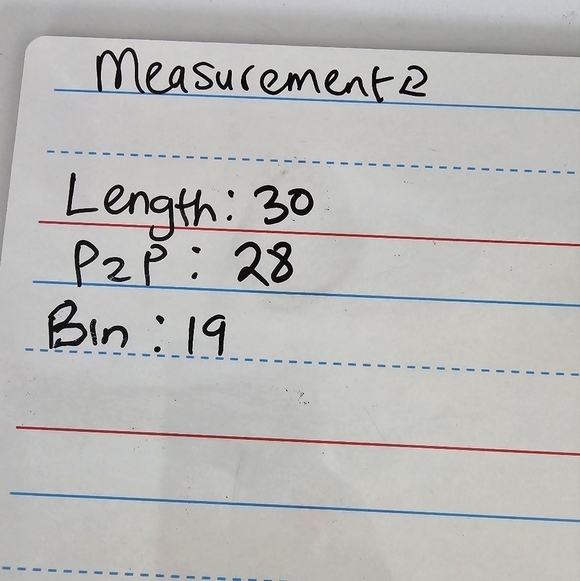 Measurement 2
Length: 30
P2P: 28
Bin: 19